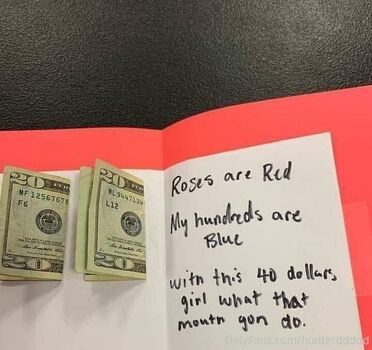 20
MF 12567678
F6
20
20
ML 9447134
L12
20
Roses are Red
My hundreds are
Blue
with this 40 dollars
girl what that
mouth gon do.
OnlyFans.com/hunterddddd